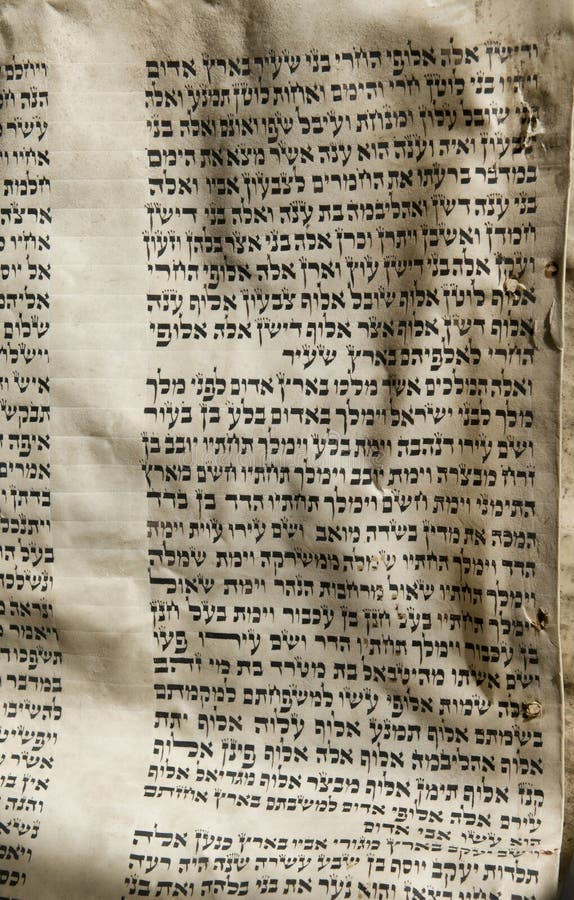 ודישן אלה אלופי החרי בני שעיר בארץ אדום
ויהיו בני לוטן חרי והימם ואחות לוטן תמנע ואלה
בני שובל עלון ומנחת ועיבל שפו ואונם ואלה בני
צבעון ואיה וענה הוא ענה אשר מצא את הימם
במדבר ברעתו את החמרים לצבעון אביו ואלה
בני ענה דשן ואהליבמה בת ענה ואלה בני דישן
חמדן ואשבן ויתרן וכרן אלה בני אצר בלהן וזעון
ועקן אלה בני דישן עוץ וארן אלה אלופי החרי
אלוף לוטן אלוף שובל אלוף צבעון אלוף ענה
אלוף דשן אלוף אצר אלוף דישן אלה אלופי
החרי לאלפיהם בארץ שעיר
ואלה המלכים אשר מלכו בארץ אדום לפני מלך
מלך לבני ישראל וימלך באדום בלע בן בעור
ושם עירו דנהבה וימת בלע וימלך תחתיו יובב בן
זרח מבצרה וימת יובב וימלך תחתיו חשם מארץ
התימני וימת חשם וימלך תחתיו הדד בן בדד
המכה את מדין בשדה מואב ושם עירו עוית וימת
הדד וימלך תחתיו שמלה ממשרקה וימת שמלה
וימלך תחתיו שאול מרחבות הנהר וימת שאול
וימלך תחתיו בעל חנן בן עכבור וימת בעל חנן
בן עכבור וימלך תחתיו הדר ושם עירו פעו
ושם אשתו מהיטבאל בת מטרד בת מי זהב
ואלה שמות אלופי עשו למשפחתם למקמתם
בשמתם אלוף תמנע אלוף עלוה אלוף יתת
אלוף אהליבמה אלוף אלה אלוף פינן אלוף
קנז אלוף תימן אלוף מבצר אלוף מגדיאל אלוף
עירם אלה אלופי אדום למשבתם בארץ אחזתם
הוא עשו אבי אדום
וישב יעקב בארץ מגורי אביו בארץ כנען אלה
תלדות יעקב יוסף בן שבע עשרה שנה היה רעה
את אחיו בצאן והוא נער את בני בלהה ואת בני
ויחלם
הנה
אחיו
חלמת
ארצה
אחיו
אל
אליהם
שלום
וישלח
איש
תבקש
איפה
אמרים
בדתן
ויתנכל
בעל
ונשלכה
ונראה
ויאמר
תשפכו
במדבר
להשיבו
ויפשיטו
אשר
אין
והנה